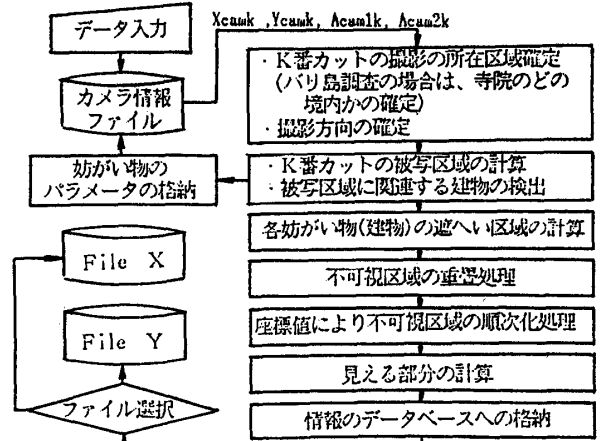 データ入力
Xcamk ,Ycamk, Acam1k, Acam2k
カメラ情報
ファイル
・K番カットの撮影の所在区域確定
(バリ島調査の場合は、寺院のどの
境内かの確定)
・撮影方向の確定
妨がい物の
パラメータの格納
・K番カットの被写区域の計算
・被写区域に関連する建物の検出
各妨がい物(建物)の遮へい区域の計算
File X
不可視区域の重畳処理
File Y
座標値により不可視区域の順次化処理
見える部分の計算
ファイル選択
情報のデータベースへの格納